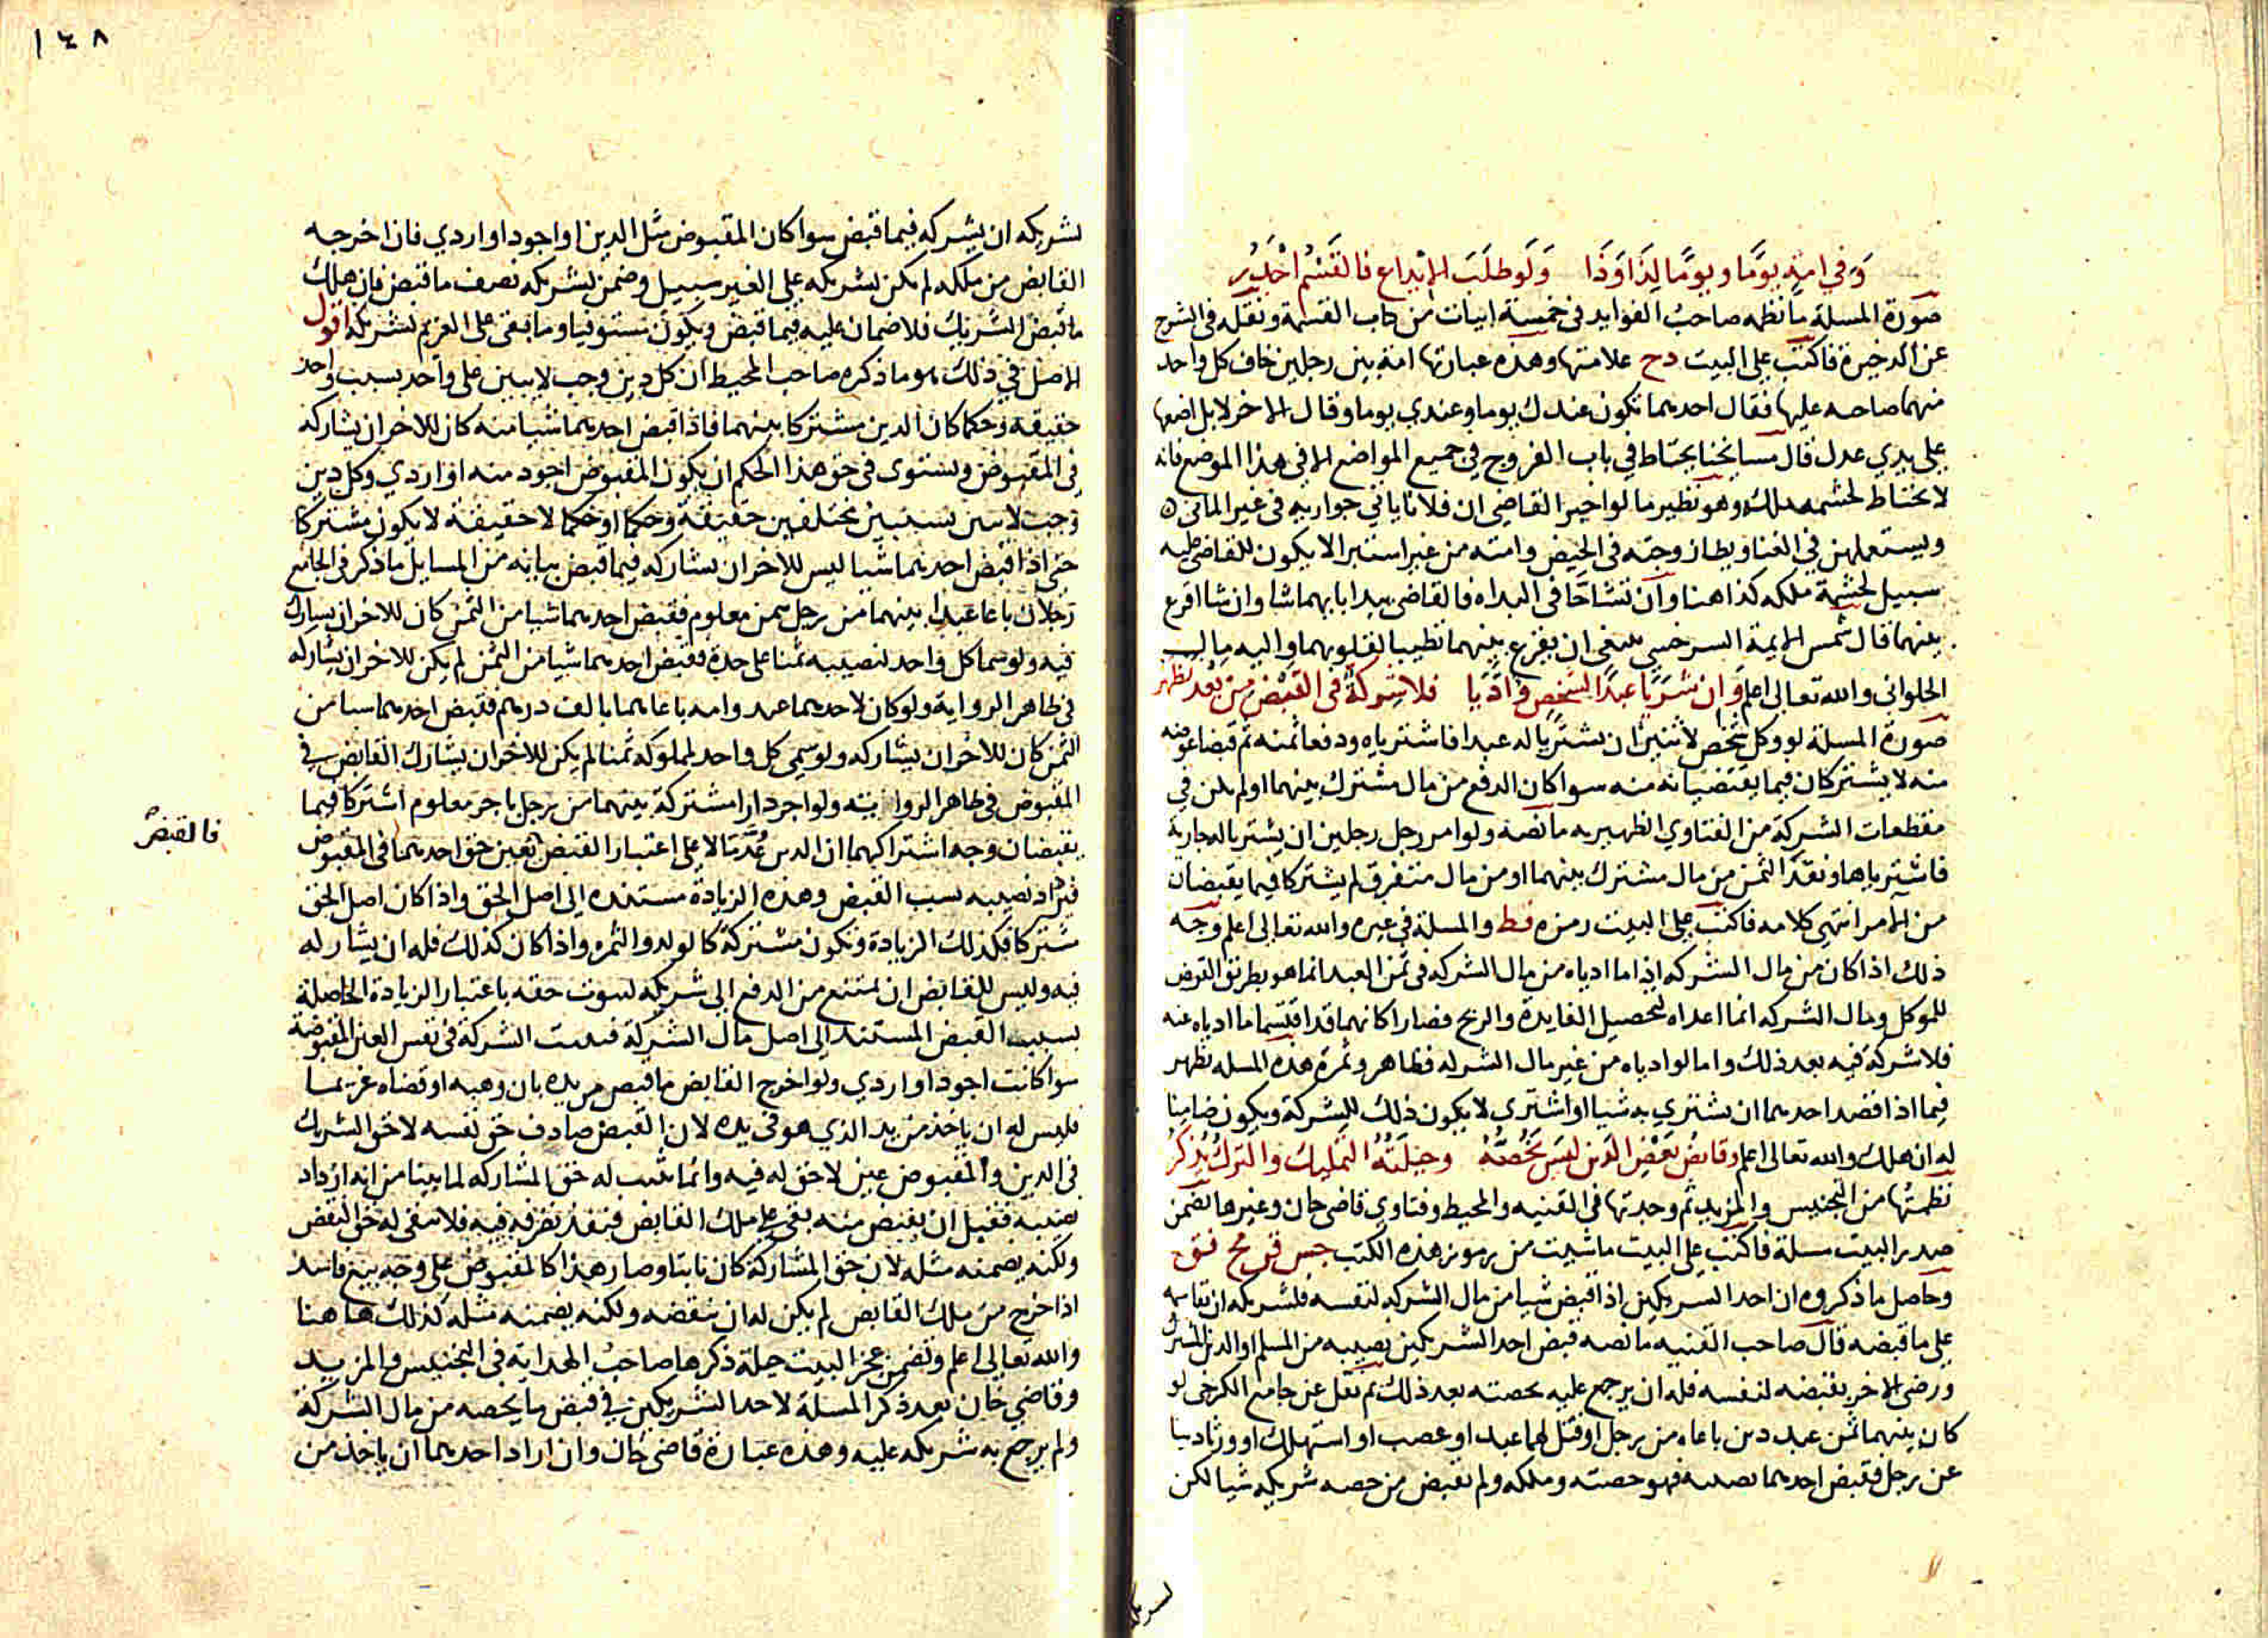 وَفي امةٍ يومًا ويومًا لِذَا وَذَا ولَو طلَبَ الإيداع فالقَسْم اجْدَرُ
صورة المسلة ما نظمه صاحبُ الفوايد في خمسة ابيات من كتاب القسمة ونقله في الشرح
عن الدخيرة فاكتب على البيت دح علامتها وهذه عبارتها امة بين رجلين خاف كل واحد
منهما صاحبه عليها فقال احدهما تكون عندك يوما وعندي يوما وقال الاخر لا بل اضعها
على يدي عدل قال مسايخنا يحتاط في باب الفروج في جميع المواضع الا في هذا الموضع فانه
لا يحتاط لحشمه ملك وهو نظير ما لو اخبر القاضي ان فلانا ياتي جواريه في غير الماتى
ويستعملهن في الغنا ويطا زوجته في الحيض وامته من غير استبرا لا يكون للقاضي عليه
سبيل لحشمة ملكه كذا هنا وان تشاحّا في البداه فالقاضي يبدا بايهما شا وان شا اقرع
بينهما قال شمس الايمة السرخسي ينبغي ان يقرع بينهما تطييبا لقلوبهما واليه مال
الحلواني والله تعالى اعلم وان شريا عبدًا لشخصٍ وادّيا فلا شركةٌ في القبض من بعد تظهر
صورة المسلة لو وكل شخص لاثنين ان يشتريا له عبدا فاشترياه ودفعا ثمنه ثم قبضا عوضه
منه لا يشتركان فيما يقتضيانه منه سوا كان الدفع من مال مشترك بينهما او لم يكن في
مقطعات الشركة من الفتاوي الظهيريه ما نصه ولو امر رجل رجلين ان يشتريا له جارية
فاشترياها ونقدا الثمن من مال مشترك بينهما او من مال متفرق لم يشتركا فيما يقبضان
من الآمر انتهى كلامه فاكتب على البيت رمزه فط والمسلة في غيره والله تعالى اعلم وجه
ذلك اذا كان من مال الشركه ان ما ادياه من مال الشركه في ثمن العبد انما هو بطريق القرض
للموكل ومال الشركه انما اعداه لتحصيل الفايدة والربح فصارا كانهما قد اقتسما ما ادياه عنه
فلا شركة فيه بعد ذلك واما لو ادياه من غير مال الشركه فظاهر وثمرة هذه المسله تظهر
فيما اذا قصد احدهما ان يشتري به شيا او اشترى لا يكون ذلك للشركة ويكون ضامنا
له ان هلك والله تعالى اعلم وقابضُ بَعْضِ الدَين ليس يَخُصُّهُ وحيلَتُهُ التمليك والتركُ يُذكَرُ
نظمتُها من التجنيس والمزيد ثم وجدتها في القنيه والمحيط وفتاوي قاضي خان وغيرها تضمن
صدر البيت مسلة فاكتب على البيت ما شيت من رموز هذه الكتب جس قن مح فق
وحاصل ما ذكروه ان احد الشريكين اذا قبض شيا من مال الشركه لنفسه فلشريكه ان يقاسمه
على ما قبضه قال صاحب القنيه ما نصه قبض احد الشريكين نصيبه من المسلم او الدين المشترك
ورضي الاخر بقبضه لنفسه فله ان يرجع عليه بحصته بعد ذلك ثم نقل عن جامع الكرخي لو
كان بينهما ثمن عبد دين باعاه من رجل او قتل لهما عبد او غصب او استهلك او ورثا دينا
عن رجل فقبض احدهما نصيبه فهو حصته وملكه ولم يقبض من حصه شريكه شيا لكن
لشريكه
١٤٨
لشريكه ان يشركه فيما قبض سوا كان المقبوض مثل الدين او اجود او اردي فان اخرجه
القابض من ملكه لم يكن لشريكه على الغير سبيل وضمن لشريكه نصف ما قبض فان هلك
ما قبض الشريك فلا ضمان عليه فيما قبض ويكون مستوفيا وما بقي على الغريم لشريكه اقول
الاصل في ذلك هو ما ذكره صاحب المحيط ان كل دين وجب لاثنين على واحد بسبب واحد
حقيقة وحكما كان الدين مشتركا بينهما فاذا قبض احدهما شيا منه كان للاخر ان يشاركه
في المقبوض ويستوى في حق هذا الحكم ان يكون المقبوض اجود منه او اردي وكل دين
وجب لاثنين بسببين مختلفين حقيقة وحكما او حكما لا حقيقة لا يكون مشتركا
حتى اذا قبض احدهما شيا ليس للاخر ان يشاركه فيما قبض بيانه من المسايل ما ذكر في الجامع
رجلان باعا عبدا بينهما من رجل بثمن معلوم فقبض احدهما شيا من الثمن كان للاخر ان يشارك
فيه ولو سما كل واحد لنصيبه ثمنا على حدة فقبض احدهما شيا من الثمن لم يكن للاخر ان يشاركه
في ظاهر الرواية ولو كان لاحدهما عبد وامه باعاهما بالف درهم فقبض احدهما شيا من
الثمن كان للاخر ان يشاركه ولو سمى كل واحد لمملوكه ثمنا لم يكن للاخر ان يشارك القابض في
المقبوض في ظاهر الروايته ولو اجر دارا مشتركة بينهما من رجل باجر معلوم اشتركا فيما
يقبضان وجه اشتراكهما ان الدين عُدّ مالا على اعتبار القبض تعين حق احدهما في المقبوض
فالقبض صح
فيزاد نصيبه بسبب القبض وهذه الزيادة مستنده الى اصل الحق واذا كان اصل الحق
مشتركا فكذلك الزيادة وتكون مشتركة كالولد والثمره واذا كان كذلك فله ان يشاركه
فيه وليس للقابض ان يمتنع من الدفع الى شريكه لثبوت حقه باعتبار الزيادة الحاصلة
بسبب القبض المستند الى اصل مال الشركة فثبتت الشركة في نفس العين المقبوضة
سوا كانت اجود او اردي ولو اخرج القابض ما قبض من يده بان وهبه او قضاه غريما
فليس له ان ياخذ من يد الذي هو في يده لان القبض صادف حق نفسه لا حق الشريك
في الدين والمقبوض عين لا حق له فيه وانما ثبت له حق المشاركه لما بينا من انه ازداد
نصيبه فقبل ان يقبض منه بقي على ملك القابض فينفذ تصرفه فيه فلا يبقى له حق النقض
ولكنه يضمنه مثله لان حق المشاركة كان ثابتا وصار هذا كالمقبوض على وجه بيع فاسد
اذا خرج من ملك القابض لم يكن له ان ينقضه ولكنه يضمنه مثله كذلك هاهنا
والله تعالى اعلم وتضمن عجز البيت حيلة ذكرها صاحبُ الهداية في التجنيس والمزيد
وقاضي خان بعد ذكر المسلة لاحد الشريكين في قبض ما يحصه من مال الشركة
ولم يرجع به شريكه عليه وهذه عبارة قاضي خان وان اراد احدهما ان ياخذ من